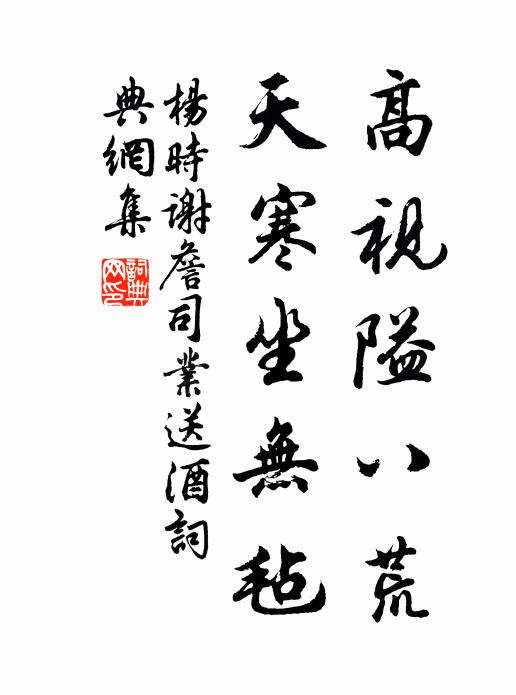 高視隘八荒
天寒坐無毡
楊時謝詹司業送酒詞
典網集
詞典
网印